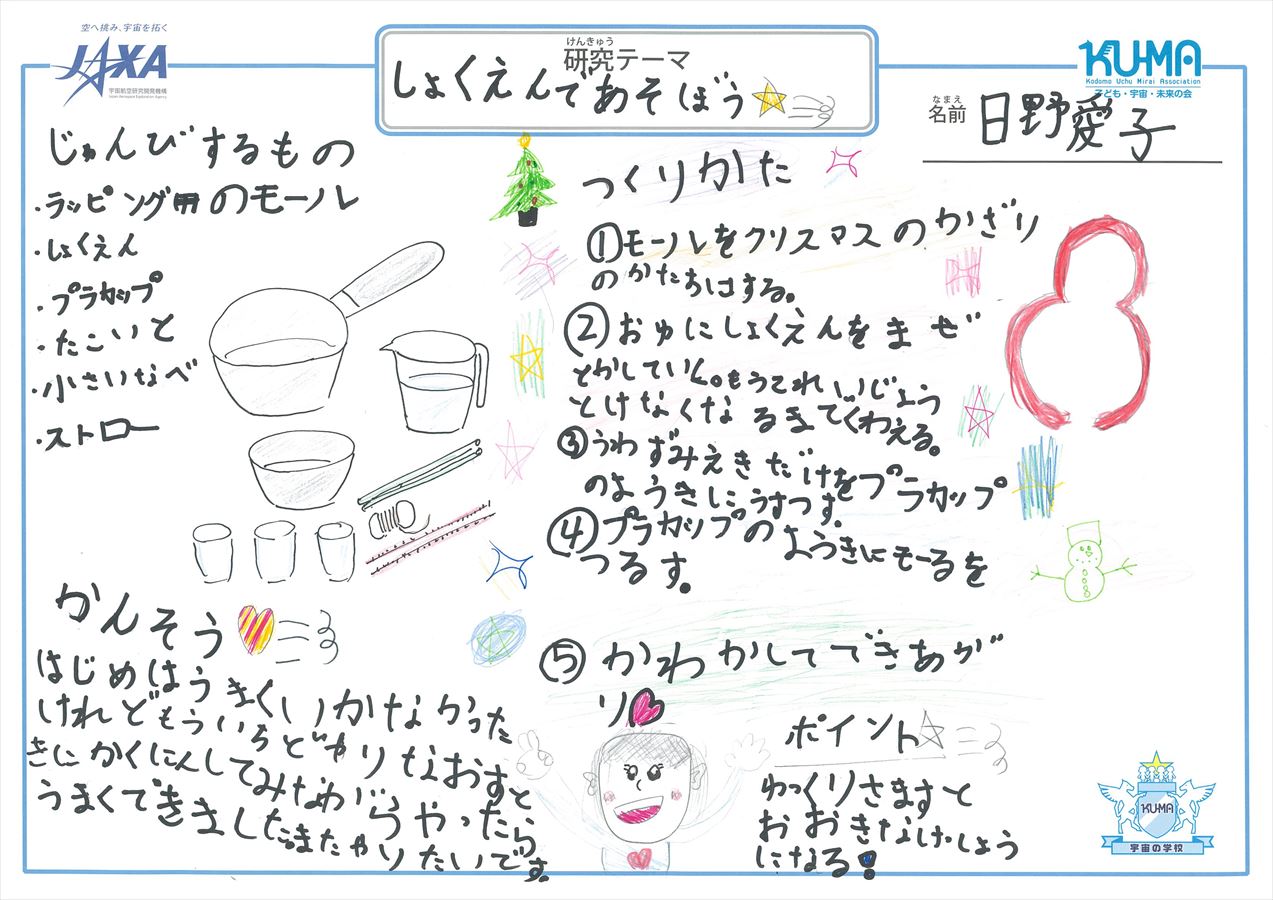 空へ挑み、宇宙を拓く
JAXA
宇宙航空研究開発機構
Japan Aerospace Exploration Agency
けんきゅう
研究テーマ
しょくえんであそぼう
KU-MA
Kodomo Uchu Mirai Association
子ども・宇宙・未来の会
なまえ
名前
日野愛子
じゅんびするもの
・ラッピング用のモール
・しょくえん
・プラカップ
・たこいと
・小さいなべ
・ストロー
つくりかた
①モールをクリスマスのかざり
のかたちにする。
②おゆにしょくえんをまぜ
とかしていく。もうこれいじょう
とけなくなるまでくわえる。
③うわずみえきだけをプラカップ
のようきにうすつす。
④プラカップのようきにモーるを
つるす。
⑤かわかしてできあが
り
ポイント
ゆっくりさますと
おおきなけっしょう
になる!
かんそう
はじめはうまくいかなかった
けれどもういちどやりなおすと
きにかくにんしてみながらやったら
うまくできました。またやりたいです。
KU-MA
宇宙の学校